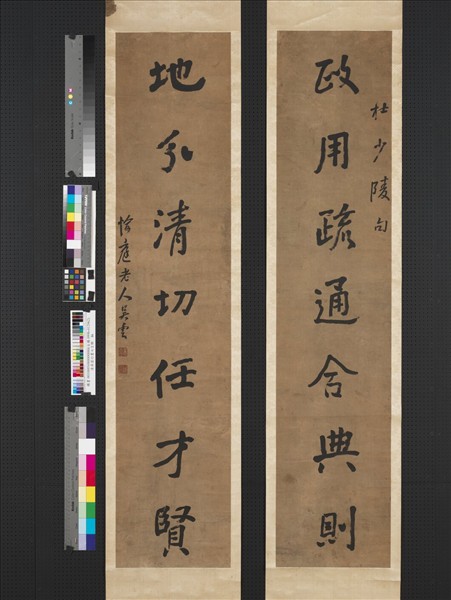 政用疏通合典則
杜少陵句
地分清切任才賢
愉庭老人吳雲